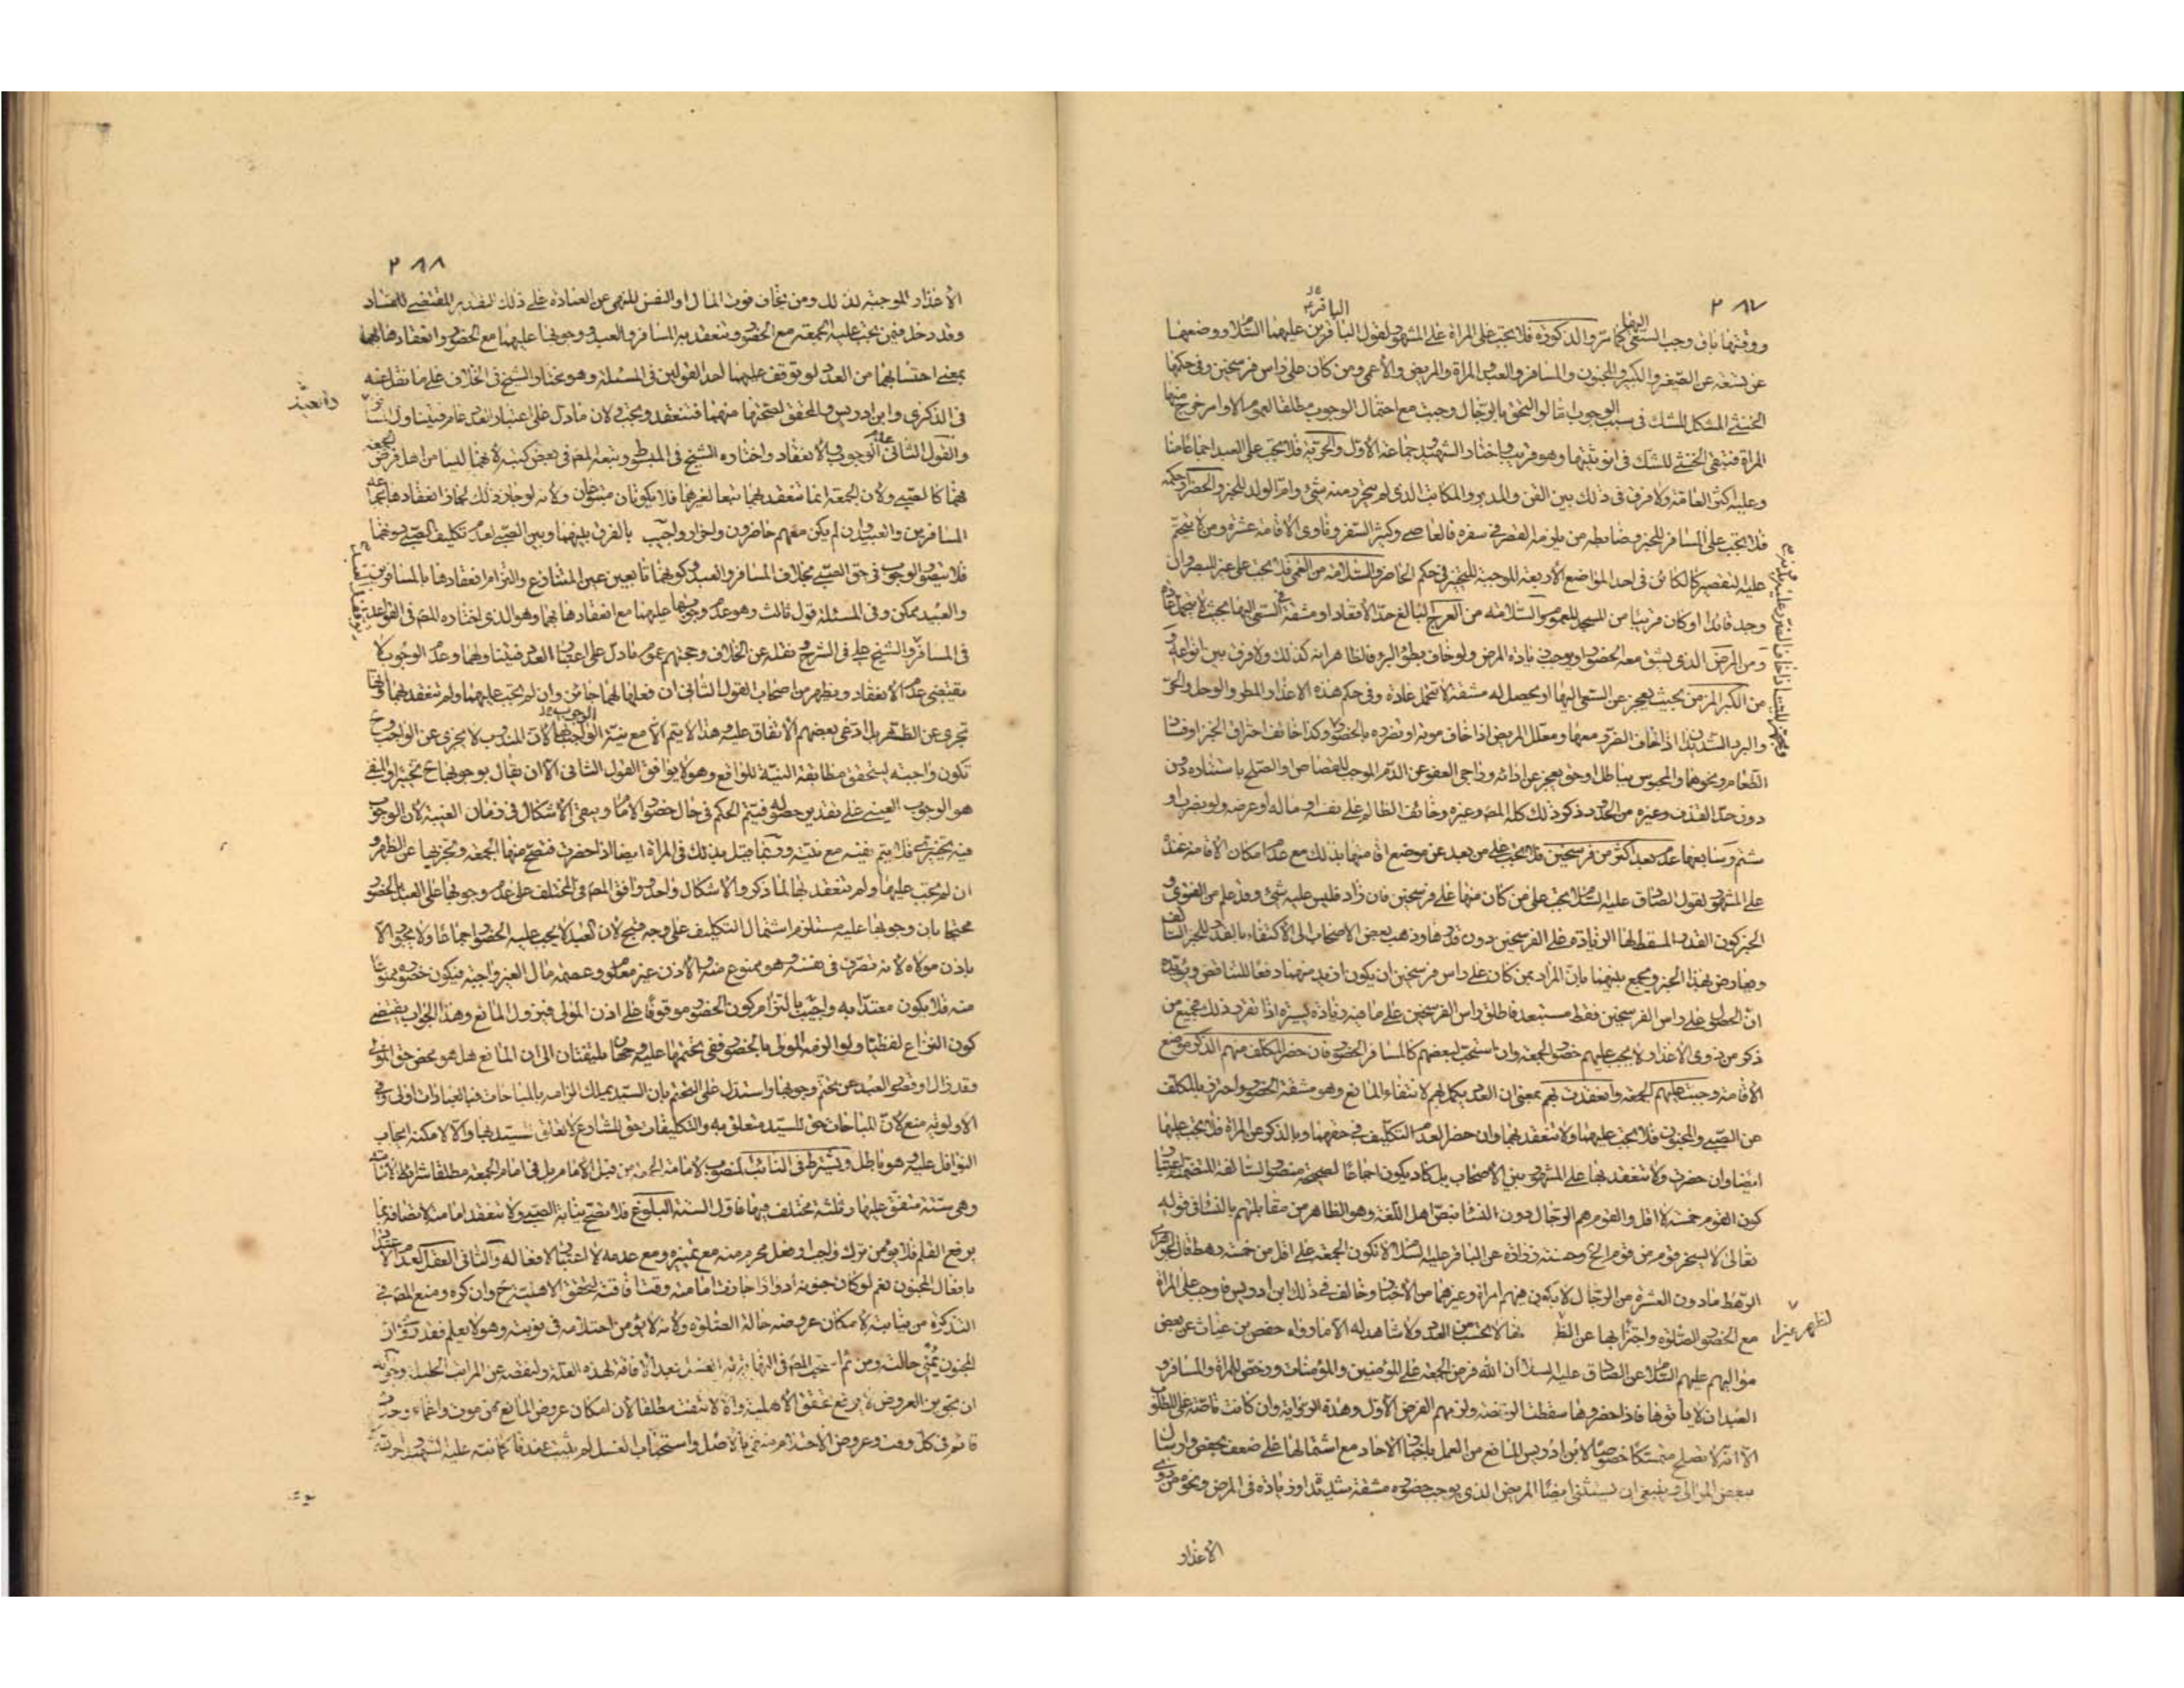 ٢٨٧
ووقتها باق وجب السعى كما مرّ والذكورة فلا يجب على المراة على المشهور لقول الباقر عليهما السّلام ووضعها
عن تسعة عن الصّغير والكبير والمجنون والمسافر والعبد والمراة والمريض والأعمى ومن كان على راس فرسخين وفى حكمها
الخنثى المشكل للشك فى سبب الوجوب اما لو التحق بالرّجال وجبت مع احتمال الوجوب مطلقا لعموم الاوامر خرج منها
المراة فتبقى الخنثى للشك فى انوثيتها وهو قريب واختار الشهيد وجماعة الاوّل والحرّية فلا تجب على العبد اجماعا منا
وعليه اكثر العامّة ولا فرق فى ذلك بين القن والمدبر والمكاتب الذى لم يتحرّر منه شئ وامّ الولد للخبر والحضر او حكمه
فلا تجب على المسافر للخبر وضابطه من يلزمه القصر فى سفره فالعاصى وكثير السّفر وناوى الاقامة عشرة ومن لا يتحتم
عليه التقصير كالكائن فى احد المواضع الأربعة الموجبة للتخيير فى حكم الحاضر والسّلامة من العمى فلا يجب على غير المبصر وان
وجد قائدا او كان قريبا من المسجد للعموم والسّلامة من العرج البالغ حدّ الاقعاد او مشقة فى السّعى اليها بحيث لا يتحمل عادة
ومن المرض الذى يشق معه الحضور او يوجب زيادة المرض ولو خاف بطؤ البرء فالظاهر انه كذلك ولا فرق بين انواعه و
من الكبر المزمن بحيث يعجز عن السّعى اليها او يحصل له مشقة لا تتحمل عادة وفى حكم هذه الاعذار المطر والوحل والحرّ
والبرد الشّديدان اذا خاف الضرر معها ومعلّل المريض اذا خاف موته او تضرره بالحضور وكذا خائف احتراق الخبز او فساد
الطّعام ونحوها والمحبوس بباطل او حق يعجز عن ادائه وراجى العفو عن الدّم الموجب للقصاص او الصّلح باستتاره
دون حدّ القذف وغيره من الحدود ذكر ذلك كله المص وغيره وخائف الظالم على نفسه او ماله او عرضه ولو بضرب او
شتم وسابعها عدم بعد اكثر من فرسخين فلا يجب على من بعد عن موضع اقامتها بذلك مع عدم امكان الاقامة عنده
على المشهور لقول الصّادق عليه السّلام يجب على من كان منها على فرسخين فان زاد فليس عليه شئ وقد علم من الفتوى و
الخبر كون القدر المسقط لها الزيادة على الفرسخين دون قدرها وذهب بعض الاصحاب الى الاكتفاء بالقدر للخبر السّالف
وعارض بهذا الخبر ويجمع بينهما بانّ المراد بمن كان على راس فرسخين ان يكون ازيد منهما دفعا للتناقض ويؤيّده
انّ الحصول على راس الفرسخين فقط مستبعد فاطلق راس الفرسخين على ما فيه زيادة يسيرة اذا تقرر ذلك فجميع من
ذكر من ذوى الاعذار لا يجب عليهم حضور الجمعة وان استحب لبعضهم كالمسافر الحضور فان حضر المكلف منهم الذكر موضع
الاقامة وجبت عليهم الجمعة وانعقدت بهم بمعنى ان العدد يكمل بهم لانتفاء المانع وهو مشقة الحضور واحترز بالمكلف
عن الصّبى والمجنون فلا يجب عليهما ولا تنعقد بهما وان حضرا لعدم التكليف فى حقهما وبالذكر عن المراة فلا يجب عليها
ايضا وان حضرت ولا تنعقد بها على المشهور بين الأصحاب بل كاد يكون اجماعا لصحيحة منصور السّالفة المتضمنة اعتبار
كون القوم خمسة لا اقل والقوم هم الرّجال دون النّساء بنصّ اهل اللّغة وهو الظاهر من مقابلتهم بالنّساء فى قوله
تعالى لا يسخر قوم من قوم الخ وحسنة زرارة عن الباقر عليه السّلام لا تكون الجمعة على اقل من خمسة رهط قال الجوهرى
الرّهط ما دون العشرة من الرّجال لا يكون فيهم امراة وغيرهما من الأخبار وخالف فى ذلك ابن ادريس فاوجب على المراة
مع الحضور الصّلوة واجتزأ بها عن الظّهر غير انّها لا تحسب من العدد ولا شاهد له الا ما رواه حفص بن غياث عن بعض
مواليهم عليهم السّلام عن الصّادق عليه السلام ان الله فرض الجمعة على المؤمنين والمؤمنات ورخّص للمراة والمسافر و
العبد ان لا ياتوها فاذا حضروها سقطت الرّخصة ولزمهم الفرض الأوّل وهذه الرواية وان كانت ناصّة على المطلوب
الّا انّه لا تصلح متمسّكا خصوصا لابن ادريس المانع من العمل باخبار الآحاد مع اشتمالها على ضعف بحفص وارسال
ببعض الموالى وينبغى ان يستثنى ايضا المريض الذى يوجب حضوره مشقة شديدة او زيادة فى المرض ونحوه من ذوى
الاعذار
٢٨٨
الاعذار الموجبة لذلك ومن يخاف فوت المال او النفس للنهى عن العبادة على ذلك التقدير المقتضى للفساد
وقد دخل فيمن يجب عليه الجمعة مع الحضور وتنعقد به المسافر والعبد ووجوبها عليهما مع الحضور وانعقادها بهما
بمعنى احتسابهما من العدد لو توقف عليهما احد القولين فى المسئلة وهو مختار الشيخ فى الخلاف على ما نقل عنه
فى الذكرى وابن ادريس والمحقق لصحّتها منهما فتنعقد وتجب ولان ما دلّ على اعتبار العدد عام فيتناول
والقول الثّانى عدم الوجوب والانعقاد واختاره الشيخ فى المبسوط وتبعه المص فى بعض كتبه لأنهما ليسا من اهل فرض الجمعة
فهما كالصّبى ولان الجمعة انما تنعقد بهما تبعا لغيرهما فلا يكونان متبوعان ولانه لو جاز ذلك لجاز انعقادها بجماعة
المسافرين والعبيد وان لم يكن معهم حاضرون ولا احرار واجيب بالفرق بينهما وبين الصّبى لعدم تكليف الصّبى دونهما
فلا يتصوّر الوجوب فى حق الصّبى بخلاف المسافر والعبد وكونهما تابعين عين المتنازع والتزام انعقادها بالمسافرين
والعبيد ممكن وفى المسئلة قول ثالث وهو عدم وجوبها عليهما مع انعقادها بهما وهو الذى اختاره المص فى القواعد
فى المسافر والشيخ على فى الشرح ونقله عن الخلاف وحجتهم عموم ما دلّ على اعتبار العدد فيتناولهما وعدم الوجوب لا
يقتضى عدم الانعقاد ويظهر من اصحاب القول الثّانى ان فعلها لهما جائز وان لم تجب عليهما ولم تنعقد بهما وانها
تجزى عن الظهر بل ادّعى بعضهم الاتفاق عليه وهذا لا يتم الا مع نيّة الوجوب بها لانّ المندوب لا يجزى عن الواجب و ح
تكون واجبة ليتحقق مطابقة النيّة للواقع وهو لا يوافق القول الثّانى الا ان يقال بوجوبها ح تخييرا والمنفى
هو الوجوب العينى على تقدير حضوره فيتم الحكم فى حال حضور الامام ويبقى الاشكال فى زمان الغيبة لان الوجوب
فيه تخييرى فلا يتم نفيه مع نيّته وربما قيل بذلك فى المراة ايضا اذا حضرت فتصحّ منها الجمعة وتجزيها عن الظهر و
ان لم تجب عليها ولم تنعقد بها لما ذكر والاشكال واحد ووافق المص فى المختلف على عدم وجوبها على العبد بالحضور
محتجا بان وجوبها عليه مستلزم اشتمال التكليف على وجه قبيح لان العبد لا يجب عليه الحضور اجماعا ولا يجوز الا
باذن مولاه لانه تصرّف فى نفسه وهو ممنوع منه والاذن غير معلوم وعصمة مال الغير واجبة فيكون حضوره ممنوعا
منه فلا يكون معتدّا به واجيب بالتزام كون الحضور موقوفا على اذن المولى فيزول المانع وهذا الجواب يقتضى
كون النزاع لفظيّا ولو الزمه المولى بالحضور ففى تحتمها عليه وجهان ملتفتان الى ان المانع هل هو محض حق المولى
وقد زال او قصور العبد عن تحتّم وجوبها واستدل على التحتم بان السّيد يملك الزامه بالمباحات فبالعبادات اولى وفى
الاولوية منع لانّ المباحات حق للسيد متعلق به والتكليفات حق للشارع لا تعلق للسيد بها والا لامكنه ايجاب
النوافل عليه وهو باطل ويشترط فى النائب المنصوب لامامة الجمعة من قبل الامام بل فى امام الجمعة مطلقا شرائط
وهى ستّة متفق عليها وثلثة مختلف فيها فاوّل الستة البلوغ فلا تصحّ نيابة الصّبى ولا تنعقد امامته لاتصافه بما
يرفع القلم فلا يؤمن ترك واجب او فعل محرم منه مع تميزه ومع عدمه لا اعتبار لافعاله والثانى العقل لعدم الاعتداد
بافعال المجنون نعم لو كان جنونه ادوارا جازت امامته وقت افاقته لتحقق الاهليّة ح وان كره ومنع المص فى
التذكرة من نيابته لامكان عروضه حالة الصّلوة ولانه لا يؤمن احتلامه فى نوبته وهو لا يعلم فقد روى ان
المجنون يُمنى حالته ومن ثم استحب المص فى النهاية له الغسل بعد الافاقة لهذه العلة ولنقصه عن المراتب الجليلة وجوابه
ان تجويز العروض لا يرفع تحقق الاهلية والا لانتفت مطلقا لأن امكان عروض المانع من موت واغماء وحدث
قائم فى كل وقت وعروض الاحتلام منفى بالاصل واستحباب الغسل لم يثبت عندنا كما نبّه عليه الشهيد